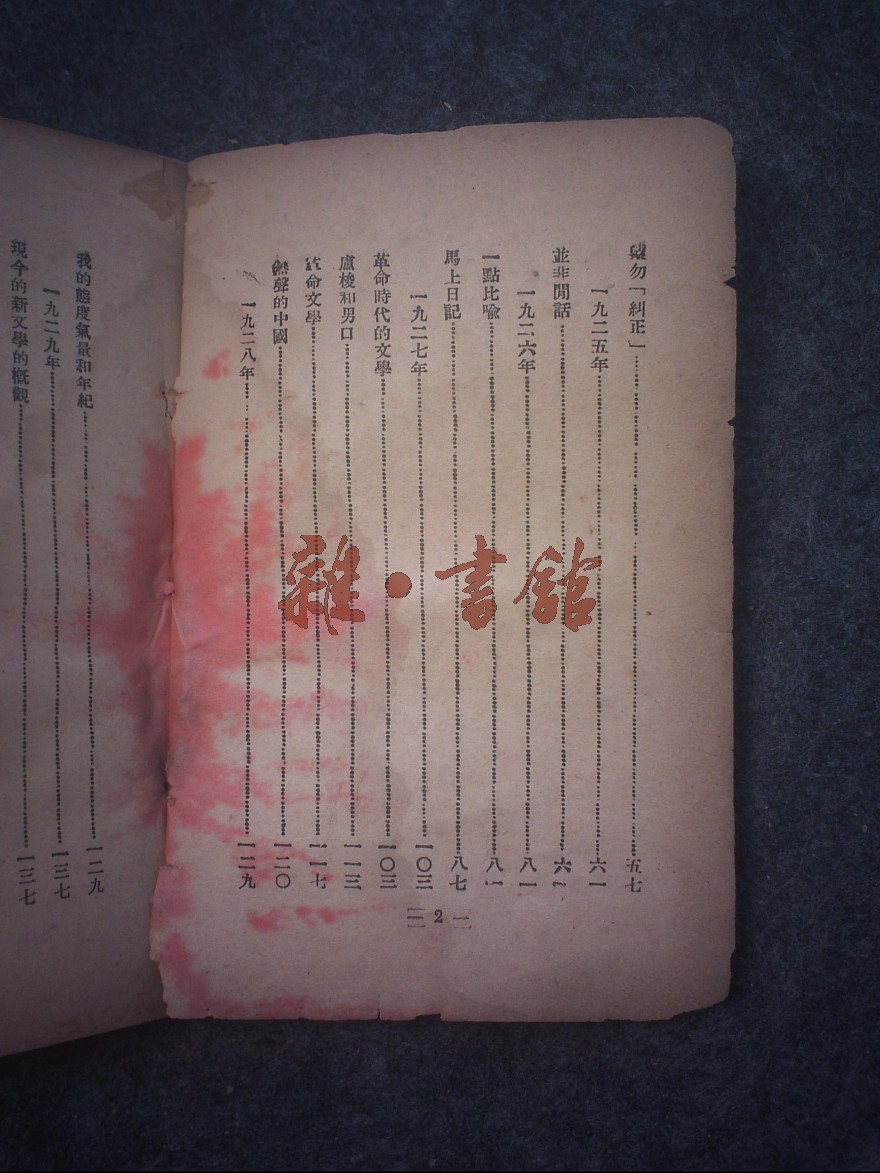 勿「糾正」……五七
一九二五年……六一
並非閒話……六一
一九二六年……八一
一點比喩……八一
馬上日記……八七
一九二七年……一〇三
革命時代的文學……一〇三
盧梭和男口……一一三
革命文學……一一七
聲的中國……一二〇
一九二八年……一二九
2
我的態度氣量和年紀……一二九
一九二九年……一三七
現今的新文學的概觀……一三七
雜·書館